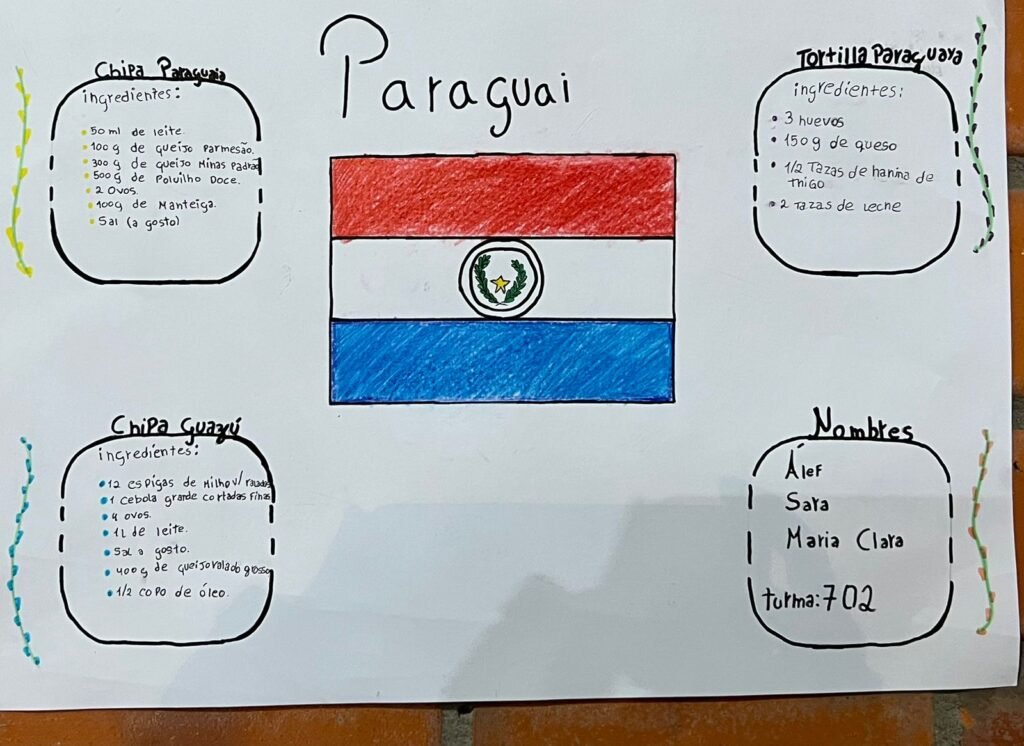 Paraguai
Chipa Paraguaia
ingredientes:
50 ml de leite.
100 g de queijo Parmesão.
300 g de queijo Minas Padrão
500 g de Polvilho Doce.
2 ovos.
100g de Manteiga.
Sal (a gosto)
Tortilla Paraguaya
ingredientes:
3 huevos
150 g de queso
1/2 Tazas de harina de
trigo
2 tazas de leche
Chipa Guazú
ingredientes:
12 espigas de Milho v/ raladas
1 cebola grande cortadas finas
4 ovos.
1L de leite.
Sal a gosto.
400 g de queijo ralado grosso
1/2 copo de óleo.
Nombres
Álef
Sara
Maria Clara
turma: 702